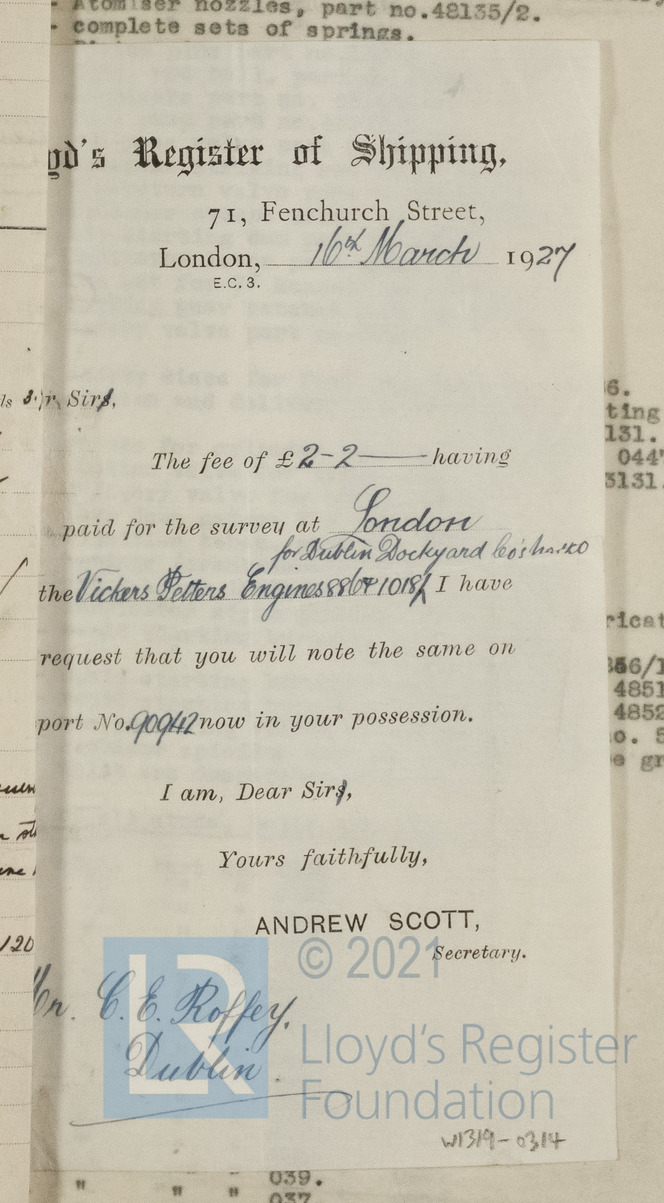 - Atomiser nozzles, part no.48135/2.
- complete sets of springs.
yd's Register of Shipping,
71, Fenchurch Street,
London, 16th March 1927
E.C. 3.
r, Sirs,
The fee of £2-2 having
paid for the survey at London
for Dublin Dockyard Co's
the Vickers Petters Engines 886 & 1018/ I have
request that you will note the same on
port No. 90942 now in your possession.
I am, Dear Sirs,
Yours faithfully,
ANDREW SCOTT,
Secretary.
Mr. C. E. Roffey,
Dublin
© 2021
Lloyd's Register
Foundation
LR
W1319-0314
6.
ting
131.
044
3131.
ricat
356/1
4851
4852
no. 5
e gr
120
" " " 039.
037